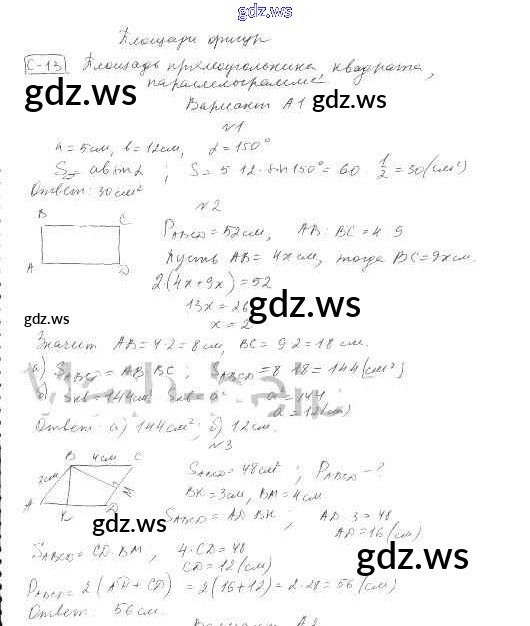 gdz.ws
Площади фигур
С-13 Площадь прямоугольника, квадрата,
параллелограмма
gdz.ws
gdz.ws
Вариант А1
№1
a = 5см, b = 12см, α = 150°
S = ab sin α ; S = 5 12 · sin 150° = 60 1/2 = 30 (см²)
Ответ: 30 см²
№2
B C
A D
P ABCD = 52 см, AB : BC = 4 9
Пусть AB = 4x см, тогда BC = 9x см.
2(4x + 9x) = 52
13x = 26
x = 2
gdz.ws
gdz.ws
Значит AB = 4 2 = 8 см, BC = 9 2 = 18 см.
а) S ABCD = AB BC ; S ABCD = 8 18 = 144 (см²)
б) Sкв = 144 см² Sкв = a² a² = 144
a = 12 (см)
Ответ: а) 144 см² ; б) 12 см.
№3
B 4см C
3см M
A K D
S ABCD = 48 см² ; P ABCD - ?
BK = 3 см, BM = 4 см
S ABCD = AD · BK ; AD · 3 = 48
AD = 16 (см)
gdz.ws
gdz.ws
S ABCD = CD · BM , 4 · CD = 48
CD = 12 (см)
P ABCD = 2 (AD + CD) = 2 (16 + 12) = 2 · 28 = 56 (см)
Ответ: 56 см.
Вариант А2